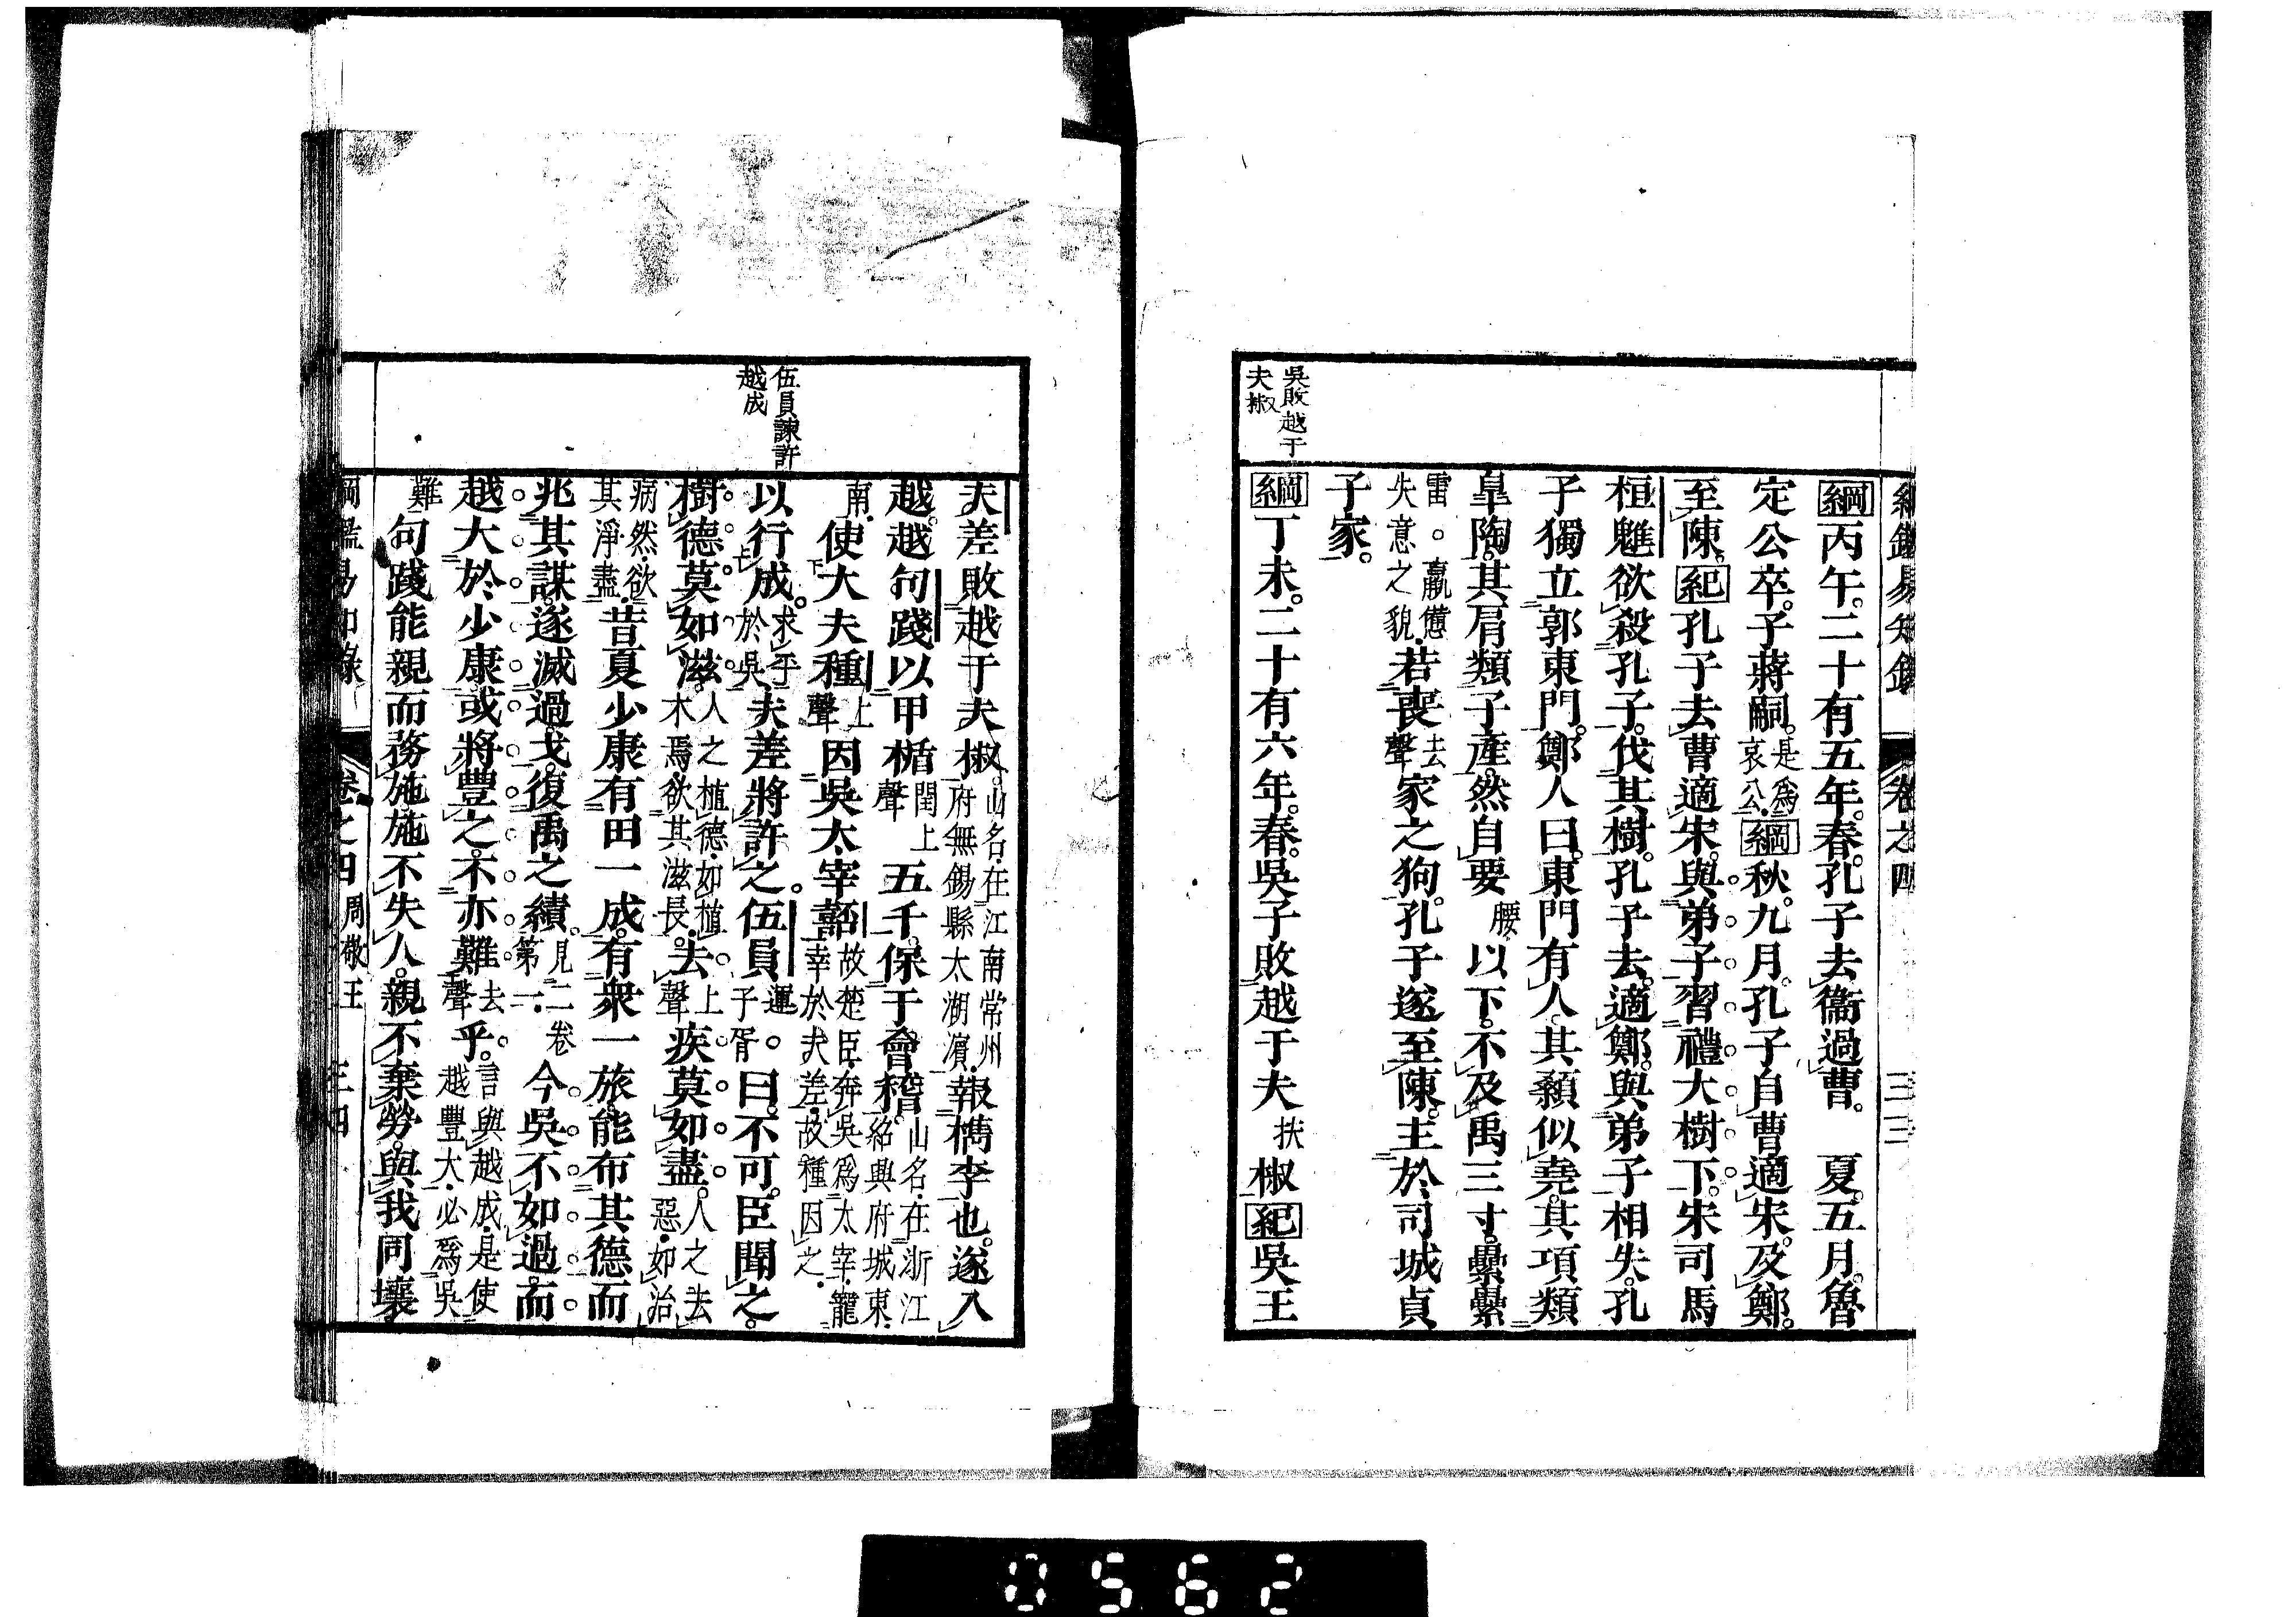 綱鑑易知錄 卷之四 三三
綱丙午。二十有五年。春。孔子去衞過曹。 夏。五月。魯
定公卒。子蔣嗣。是爲哀公。綱秋。九月。孔子自曹適宋。及鄭。
至陳。紀孔子去曹適宋。與弟子習禮大樹下。宋司馬
桓魋欲殺孔子。伐其樹。孔子去。適鄭。與弟子相失。孔
子獨立郭東門。鄭人曰。東門有人。其顙似堯。其項類
皋陶。其肩類子產。然自要腰以下。不及禹三寸。纍纍
雷。羸憊失意之貌。若喪去聲家之狗。孔子遂至陳。主於司城貞
子家。
吳敗越于夫椒
綱丁未。二十有六年。春。吳子敗越于夫扶椒紀吳王
夫差敗越于夫椒。山名。在江南常州府無錫縣太湖濱。報檇李也。遂入
越。越句踐以甲楯閏上聲五千。保于會稽。山名。在浙江紹興府城東南。
使大夫種上聲因吳太宰嚭故楚臣。奔吳爲太宰。寵幸於夫差。故種因之。
伍員諫許越成
以行成。求平於吳。夫差將許之。伍員運。子胥。曰。不可。臣聞之。
樹德莫如滋。人之植德。如植木焉。欲其滋長。去上聲疾莫如盡。人之去惡。如治
病然。欲其淨盡。昔夏少康有田一成。有衆一旅。能布其德而
兆其謀。遂滅過戈。復禹之績。見二卷第一。今吳不如過。而
越大於少康。或將豐之。不亦難去聲乎。言與越成。是使越豐大。必爲吳
難。句踐能親而務施。施不失人。親不棄勞。與我同壤。
綱鑑易知錄 卷之四 周敬王 三四
0562